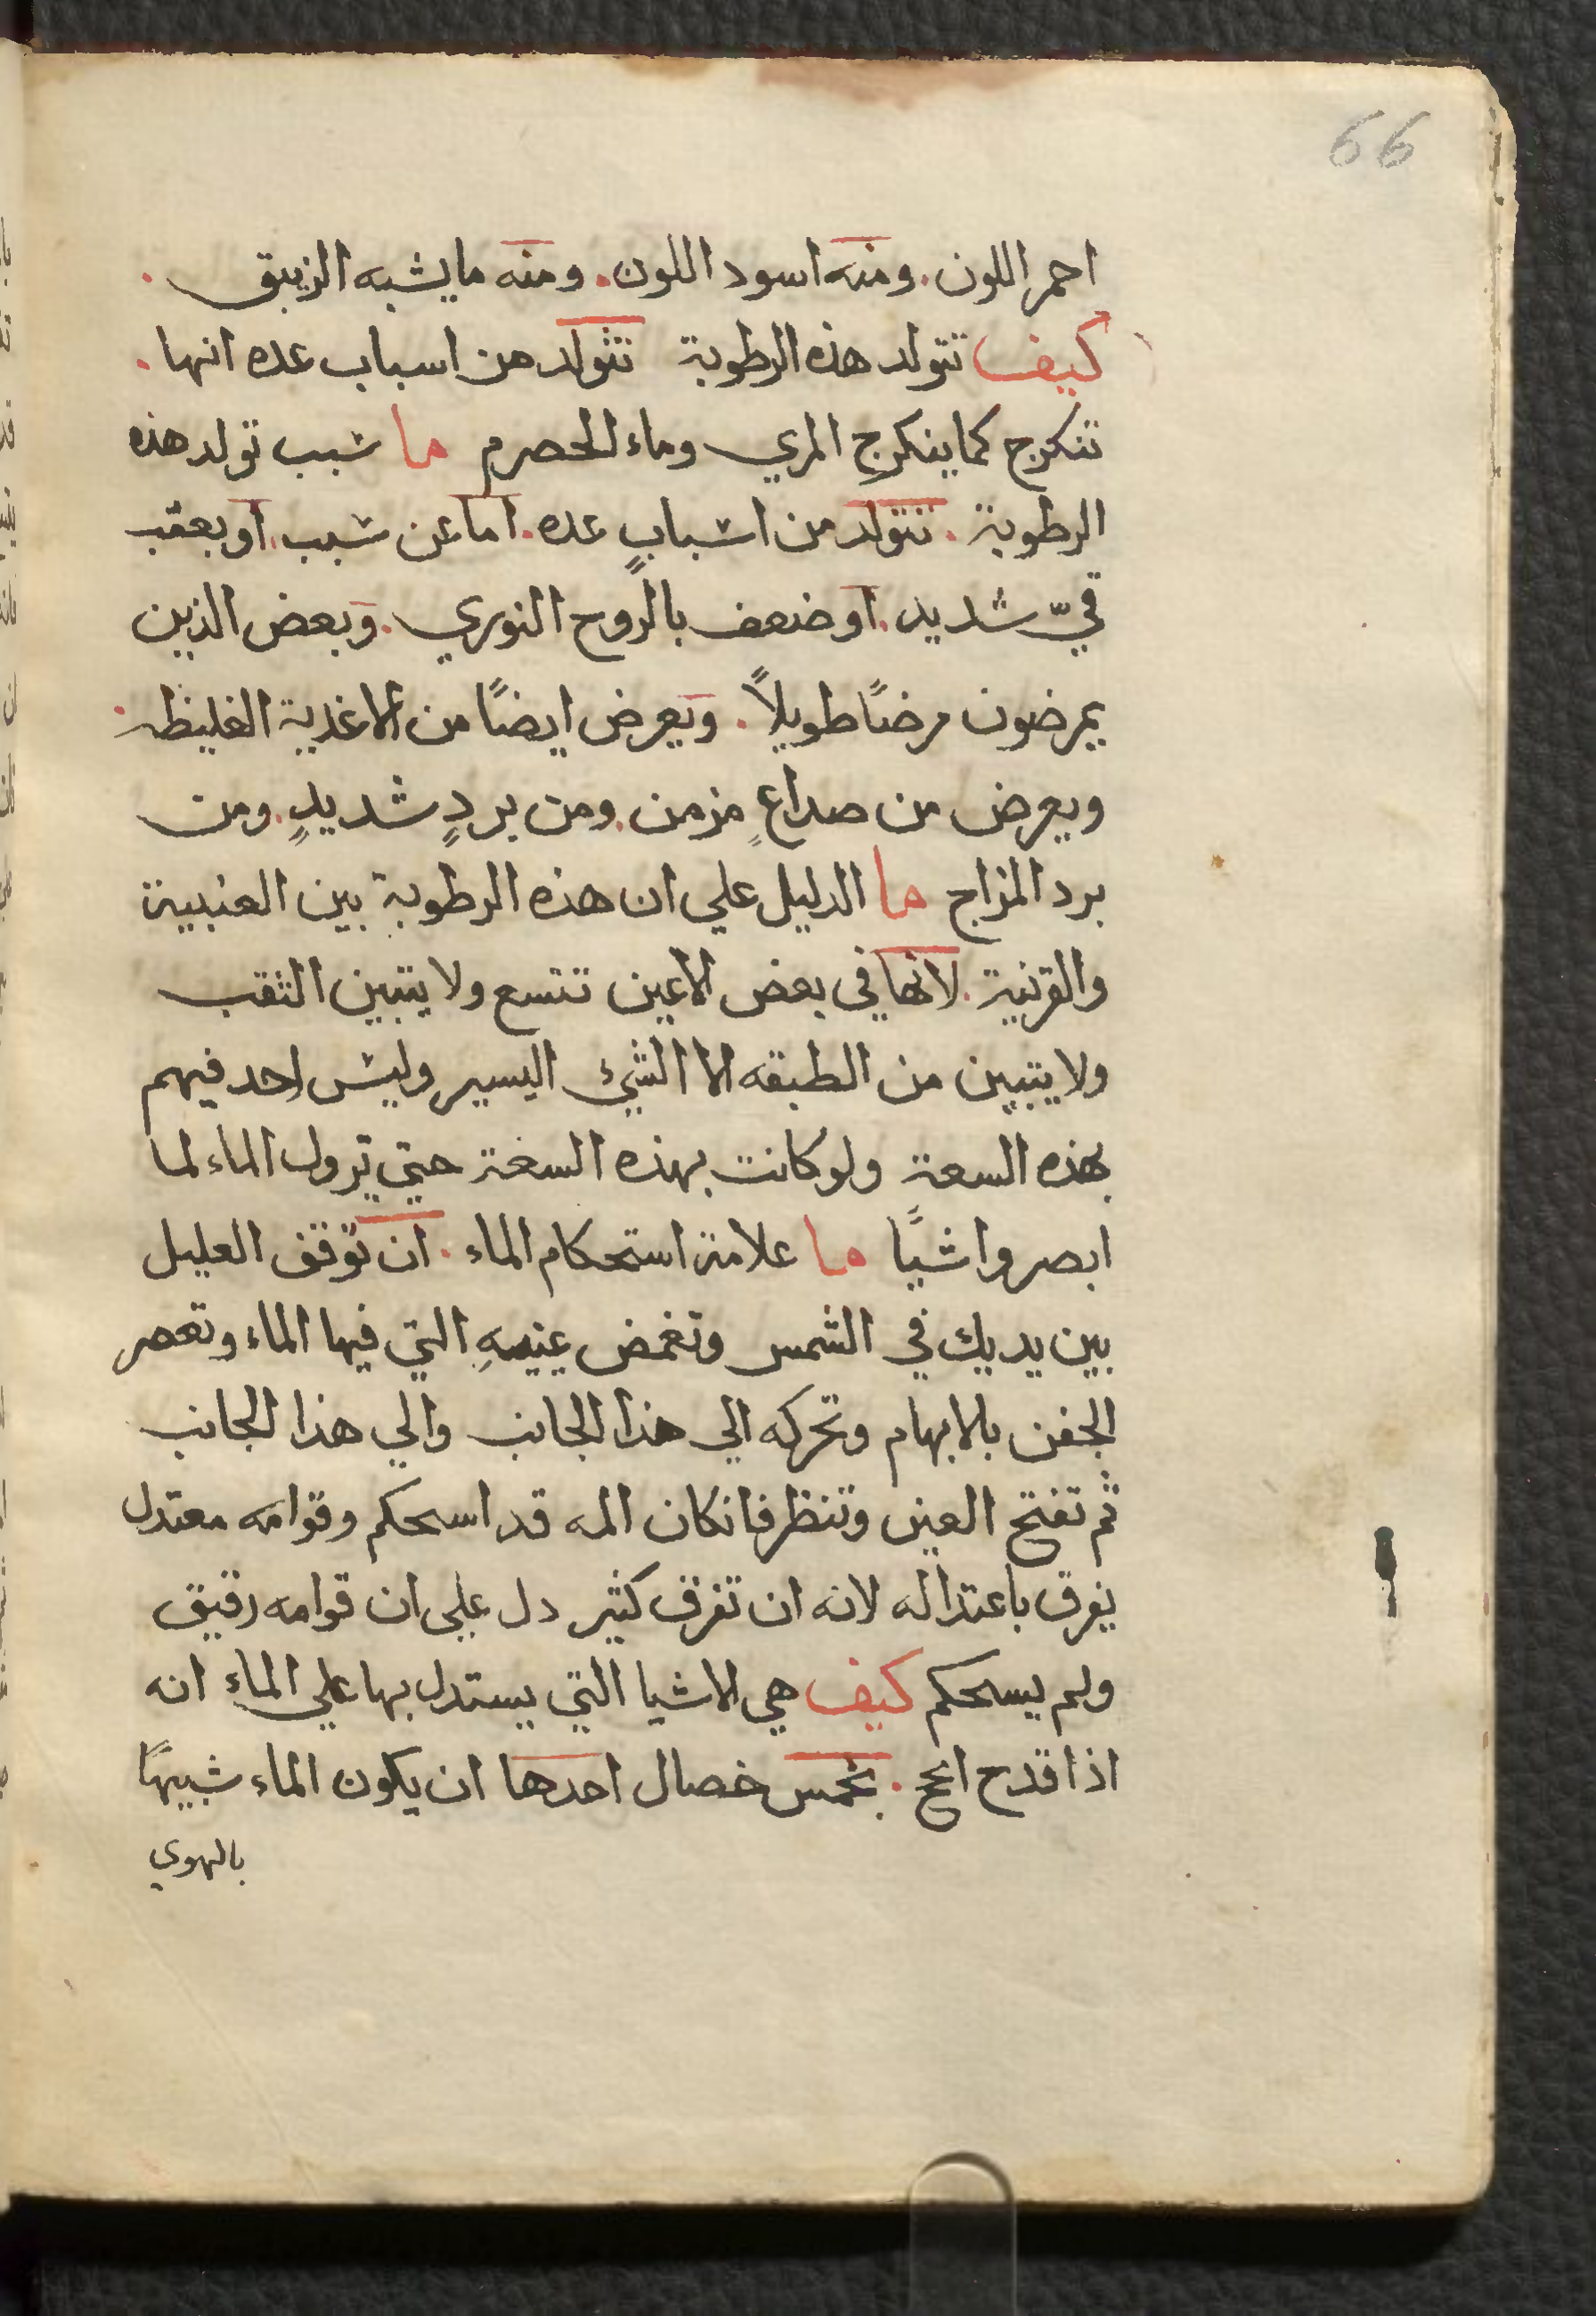 66
احمر اللون. ومنه اسود اللون. ومنه ما يشبه الزيبق.
كيف تتولد هذه الرطوبة تتولد من اسباب عده انها.
تنكرج كما ينكرج المري وماء الحصرم ما شبب تولد هذه
الرطوبة. تتولد من اشبابٍ عده. اما عن شبب. او بعقب
قيّ شديدٍ. او ضعف بالروح النوري. وبعض الذين
يمرضون مرضًا طويلاً. ويعرض ايضًا من الاغدية الغليظه.
ويعرض من صداعٍ مزمن. ومن بردٍ شديدٍ. ومن
برد المزاج ما الدليل علي ان هذه الرطوبة بين العنبية
والقرنية. لانها في بعض الاعين تتسع ولا يتبين الثقب
ولا يتبين من الطبقه الا الشيئ اليسير وليش احد فيهم
بهذه السعة ولو كانت بهذه السعة حتي تزول الماء لما
ابصروا شيًا ما علامة استحكام الماء. ان توقف العليل
بين يديك في الشمس وتغمض عينيهِ التي فيها الماء وتعصر
الجفن بالابهام وتحركه الي هذا الجانب والي هذا الجانب
ثم تفتح العين وتنظر فانكان المه قد اسحكم وقوامه معتدل
يفرق باعتداله لانه ان تفرق كثير دل علي ان قوامه رقيق
ولم يسحكم كيف هي الاشيا التي يستدل بها علي الماء انه
اذا قدح انجح. بخمس خصال احدها ان يكون الماء شبيهًا
بالهوي